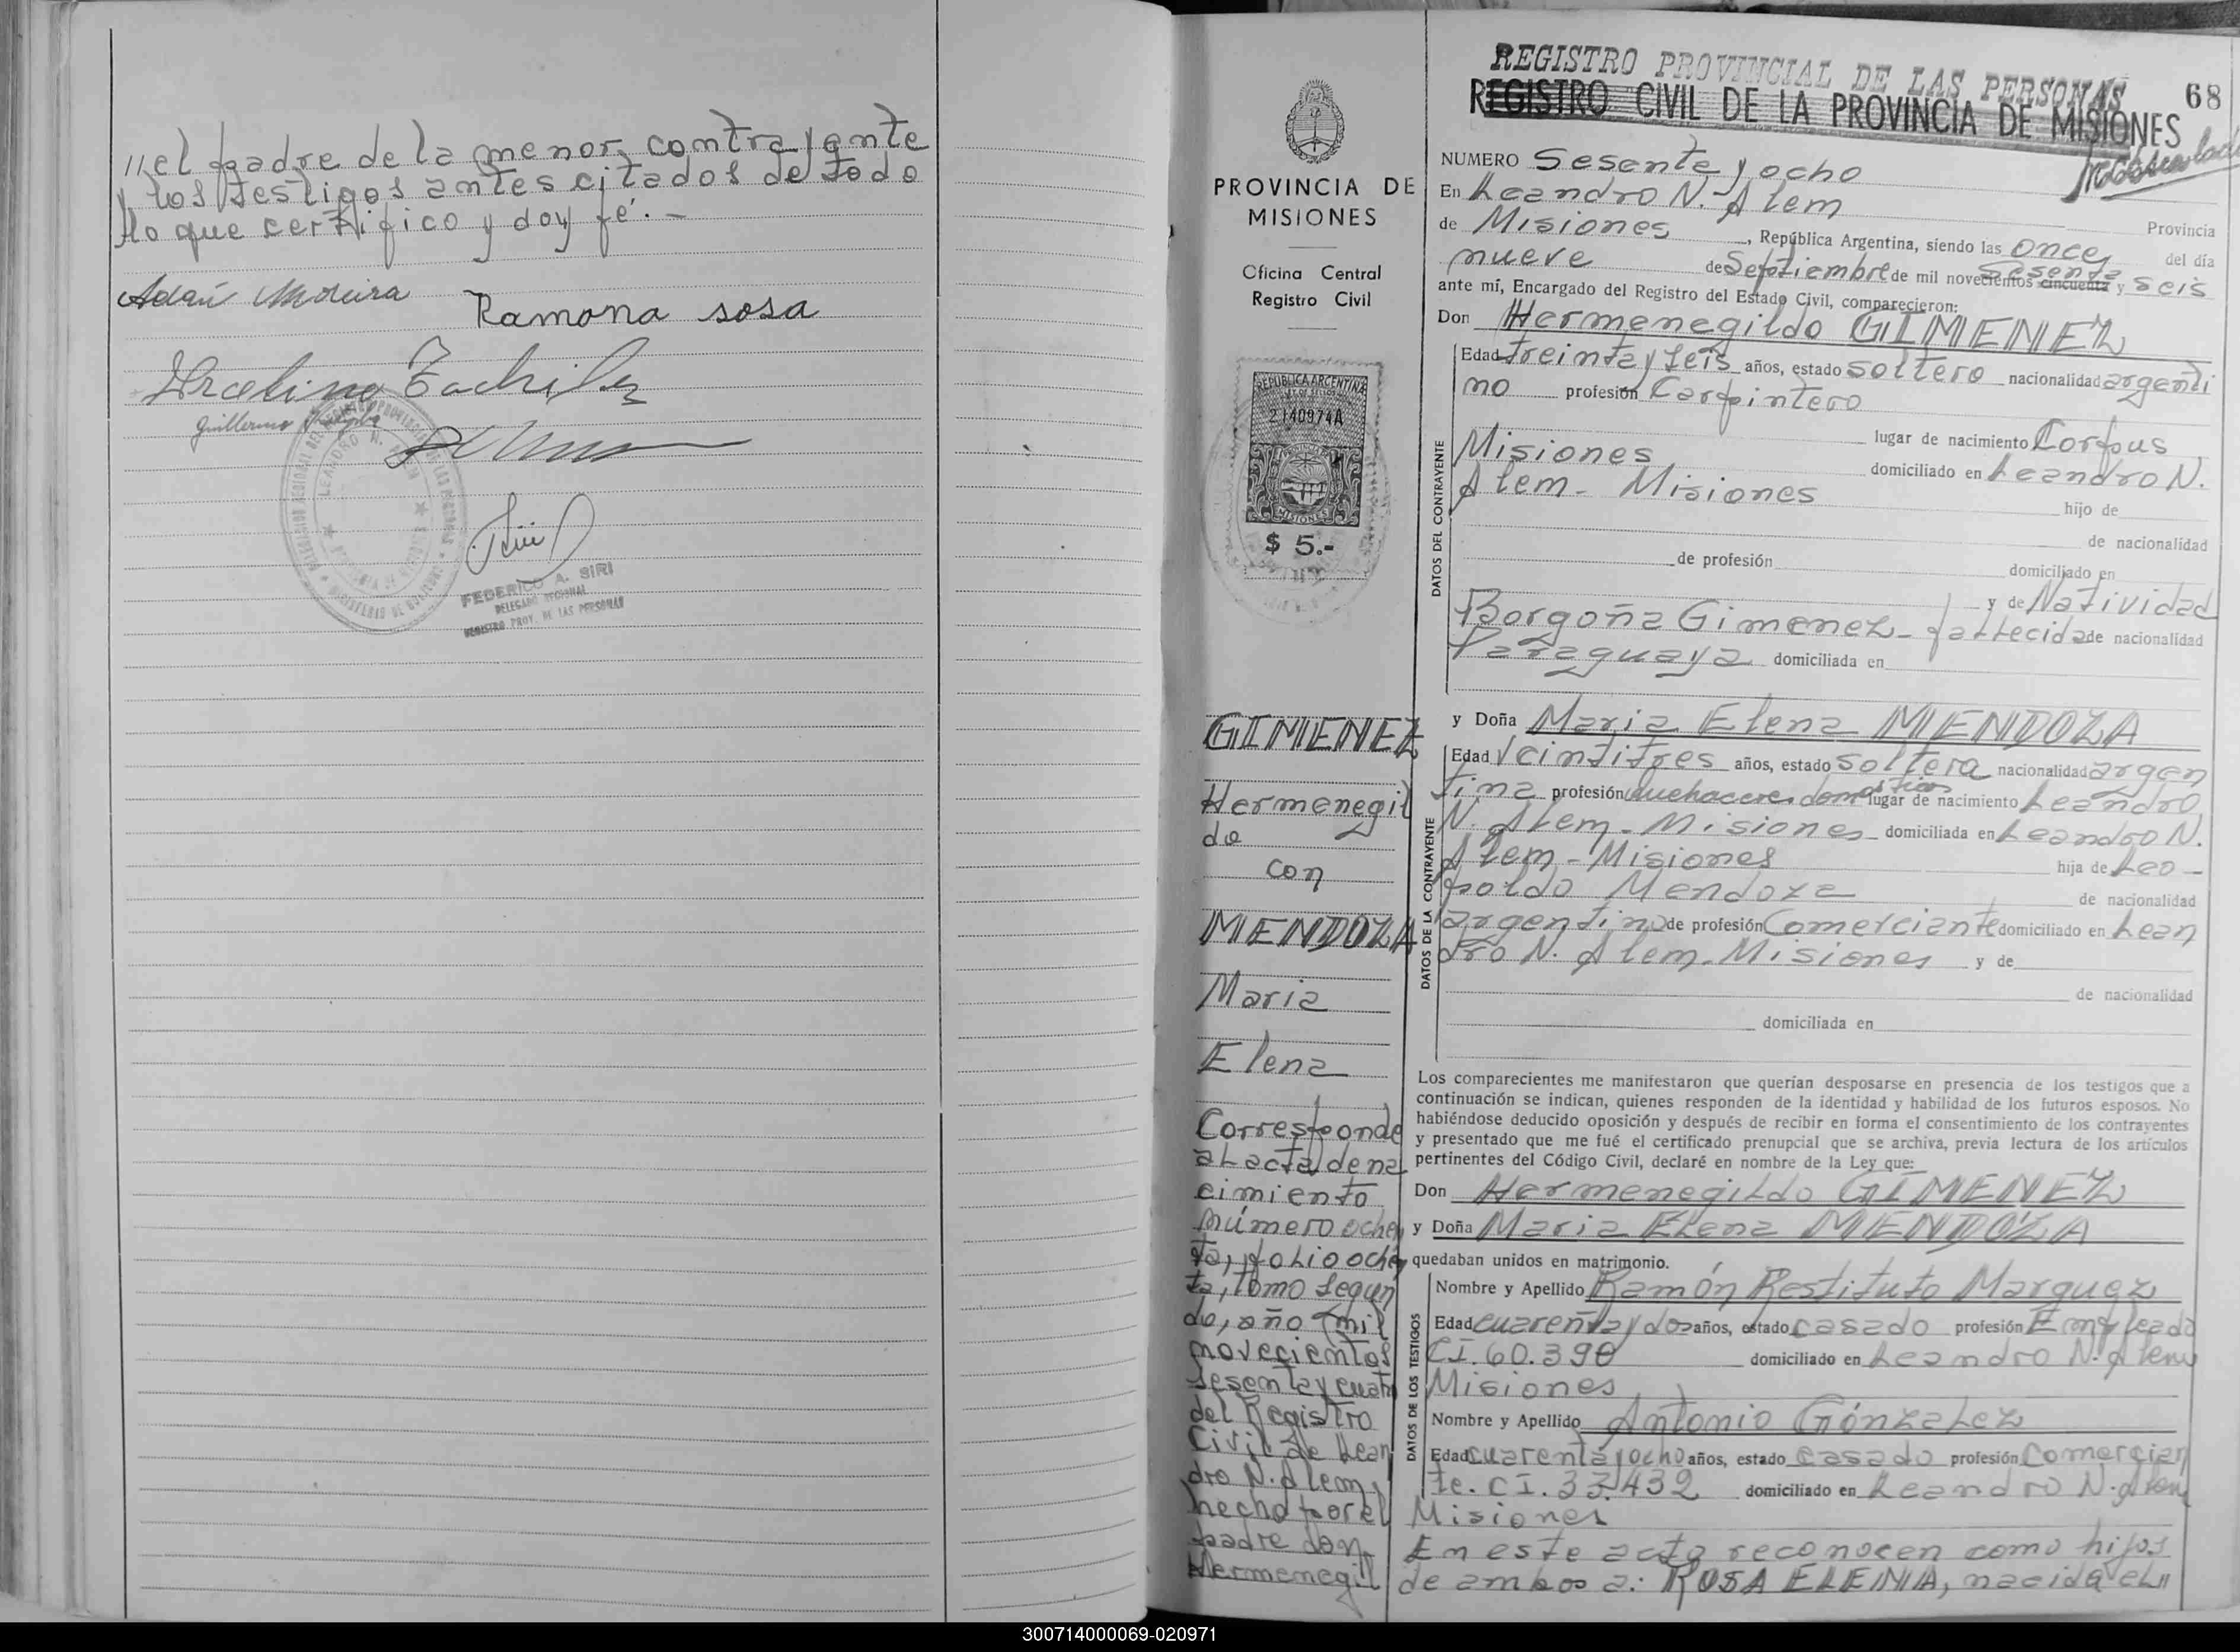 //el padre de la menor contrayente
y los testigos antes citados de todo
lo que certifico y doy fé.-
Adan Moreira
Ramona sosa
Guillermo
FEDERICO A. SIRI
DELEGADO REGIONAL
REGISTRO PROV. DE LAS PERSONAS
PROVINCIA DE
MISIONES
Oficina Central
Registro Civil
REPUBLICA ARGENTINA
2140974A
MISIONES
$ 5.-
GIMENEZ
Hermenegil
do
con
MENDOZA
Maria
Elena
Corresponde
al acta de na
cimiento
número ochen
ta, folio ochen
ta, tomo segun
do, año mil
novecientos
sesenta y cuatro
del Registro
Civil de Lean
dro N. Alem,
hecho por el
padre don
Hermenegil
REGISTRO PROVINCIAL DE LAS PERSONAS
REGISTRO CIVIL DE LA PROVINCIA DE MISIONES
68
NUMERO Sesenta y ocho
En Leandro N. Alem
Provincia
de Misiones, República Argentina, siendo las once del día
nueve de Septiembre de mil novecientos cincuenta sesenta y seis
ante mí, Encargado del Registro del Estado Civil, comparecieron:
Don Hermenegildo GIMENEZ
DATOS DEL CONTRAYENTE
Edad treinta y seis años, estado soltero nacionalidad argenti
no profesión Carpintero
lugar de nacimiento Corpus
Misiones domiciliado en Leandro N.
Alem - Misiones
hijo de
de nacionalidad
de profesión domiciliado en
y de Natividad
Borgoña Gimenez - fallecida de nacionalidad
Paraguaya domiciliada en
y Doña Maria Elena MENDOZA
DATOS DE LA CONTRAYENTE
Edad veintitres años, estado soltera nacionalidad argen
tina profesión quehaceres domésticos lugar de nacimiento Leandro
N. Alem - Misiones domiciliada en Leandro N.
Alem - Misiones hija de Leo-
poldo Mendoza de nacionalidad
argentino de profesión Comerciante domiciliado en Lean
dro N. Alem - Misiones y de
de nacionalidad
domiciliada en
Los comparecientes me manifestaron que querían desposarse en presencia de los testigos que a
continuación se indican, quienes responden de la identidad y habilidad de los futuros esposos. No
habiéndose deducido oposición y después de recibir en forma el consentimiento de los contrayentes
y presentado que me fué el certificado prenupcial que se archiva, previa lectura de los artículos
pertinentes del Código Civil, declaré en nombre de la Ley que:
Don Hermenegildo GIMENEZ
y Doña Maria Elena MENDOZA
quedaban unidos en matrimonio.
DATOS DE LOS TESTIGOS
Nombre y Apellido Ramón Restituto Marquez
Edad cuarenta y dos años, estado casado profesión Empleado
CI. 60.390 domiciliado en Leandro N. Alem
Misiones
Nombre y Apellido Antonio Gónzalez
Edad cuarenta y ocho años, estado casado profesión Comercian
te. CI. 33.432 domiciliado en Leandro N. Alem
Misiones
En este acto reconocen como hijos
de ambos a: ROSA ELENA, nacida el//
300714000069-020971